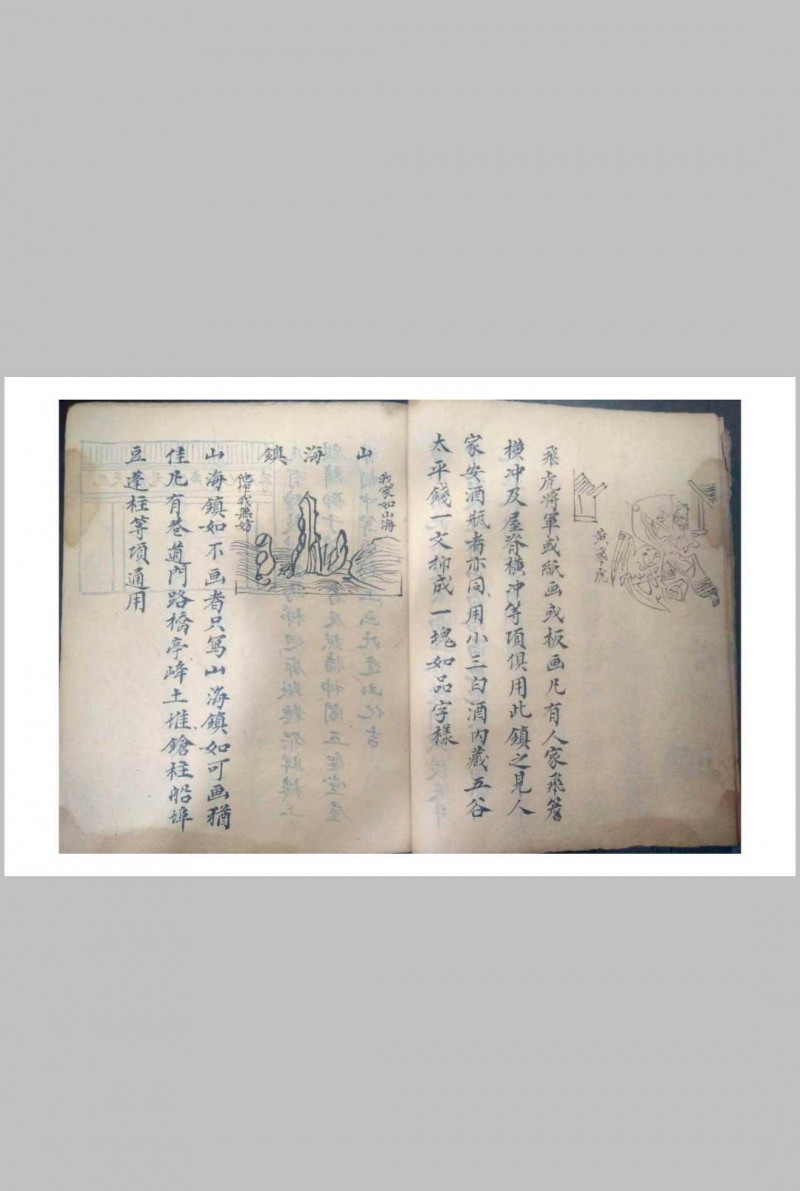 黄飛虎
飛虎將軍或紙画或板画凡有人家飛簷
横冲及屋脊横冲等項俱用此鎮之見人
家安酒瓶者亦同用小三白酒內藏五谷
太平錢一文抑成一塊如品字樣
山海鎮
我家如山海
他作我無妨
山海鎮如不画者只写山海鎮如可画猶
佳凡有巷道門路橋亭峰土堆鎗柱船埠
豆蓬柱等項通用